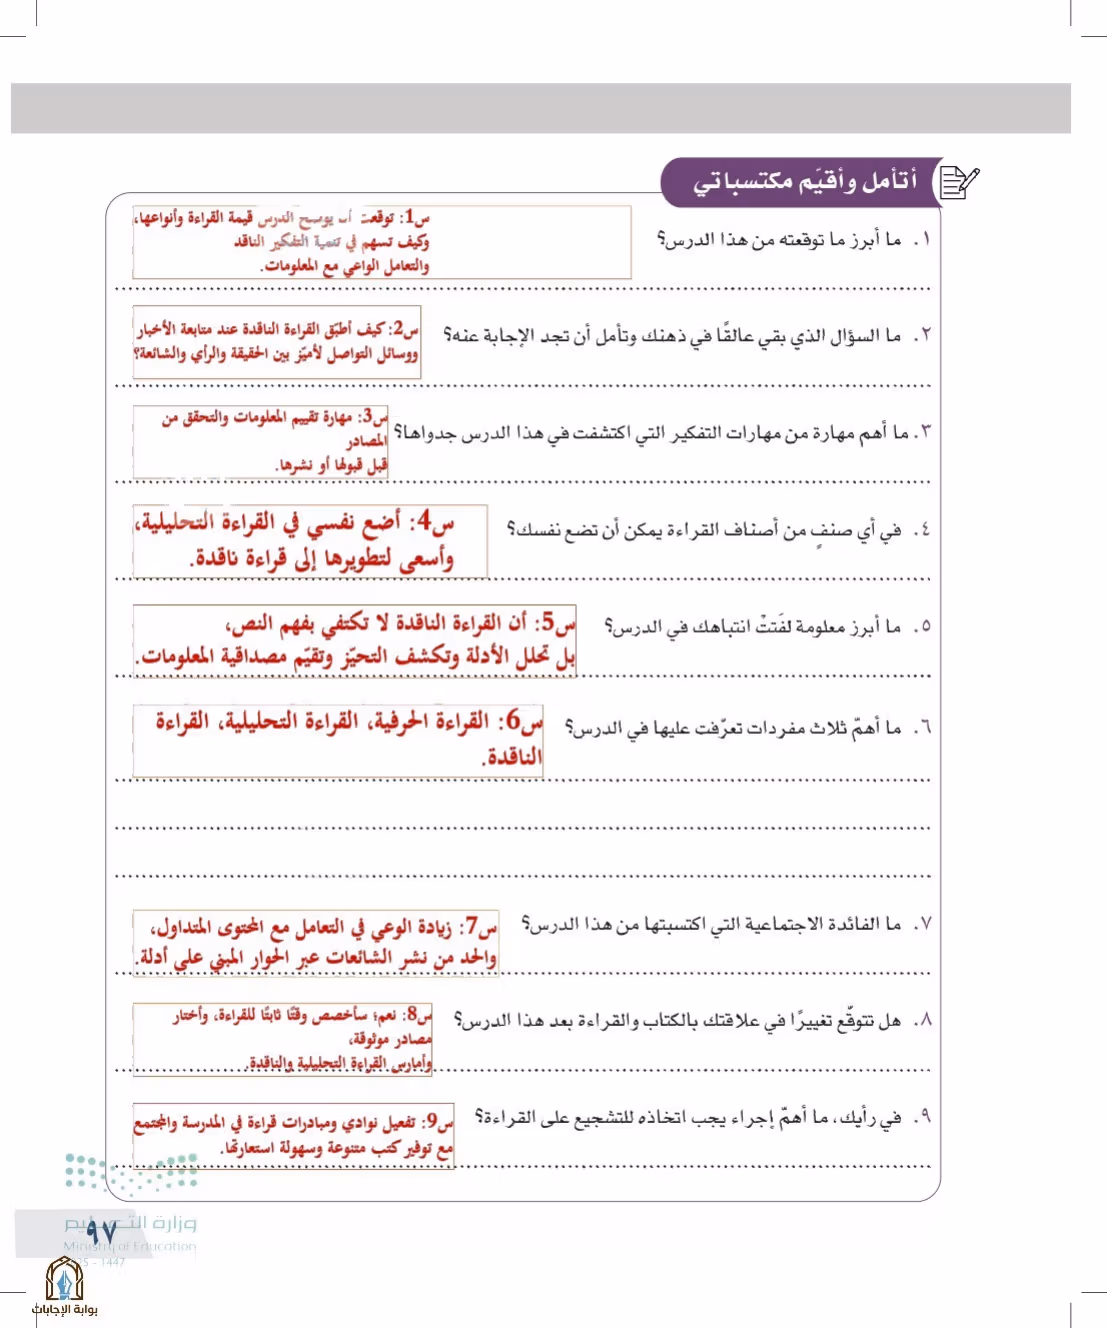 أتأمل وأقيّم مكتسباتي
١. ما أبرز ما توقعته من هذا الدرس؟
س1: توقعت أن يوضح الدرس قيمة القراءة وأنواعها،
وكيف تسهم في تنمية التفكير الناقد
والتعامل الواعي مع المعلومات.
٢. ما السؤال الذي بقي عالقًا في ذهنك وتأمل أن تجد الإجابة عنه؟
س2: كيف أطبّق القراءة الناقدة عند متابعة الأخبار
ووسائل التواصل لأميّز بين الحقيقة والرأي والشائعة؟
٣. ما أهم مهارة من مهارات التفكير التي اكتشفت في هذا الدرس جدواها؟
س3: مهارة تقييم المعلومات والتحقق من
المصادر
قبل قبولها أو نشرها.
٤. في أي صنفٍ من أصناف القراءة يمكن أن تضع نفسك؟
س4: أضع نفسي في القراءة التحليلية،
وأسعى لتطويرها إلى قراءة ناقدة.
٥. ما أبرز معلومة لفَتتْ انتباهك في الدرس؟
س5: أن القراءة الناقدة لا تكتفي بفهم النص،
بل تحلل الأدلة وتكشف التحيّز وتقيّم مصداقية المعلومات.
٦. ما أهمّ ثلاث مفردات تعرّفت عليها في الدرس؟
س6: القراءة الحرفية، القراءة التحليلية، القراءة
الناقدة.
٧. ما الفائدة الاجتماعية التي اكتسبتها من هذا الدرس؟
س7: زيادة الوعي في التعامل مع المحتوى المتداول،
والحد من نشر الشائعات عبر الحوار المبني على أدلة.
٨. هل تتوقّع تغييرًا في علاقتك بالكتاب والقراءة بعد هذا الدرس؟
س8: نعم؛ سأخصص وقتًا ثابتًا للقراءة، وأختار
مصادر موثوقة،
وأمارس القراءة التحليلية والناقدة.
٩. في رأيك، ما أهمّ إجراء يجب اتخاذه للتشجيع على القراءة؟
س9: تفعيل نوادي ومبادرات قراءة في المدرسة والمجتمع
مع توفير كتب متنوعة وسهولة استعارتها.
وزارة التعليم
٩٧
Ministry of Education
1447
بوابة الإجابات